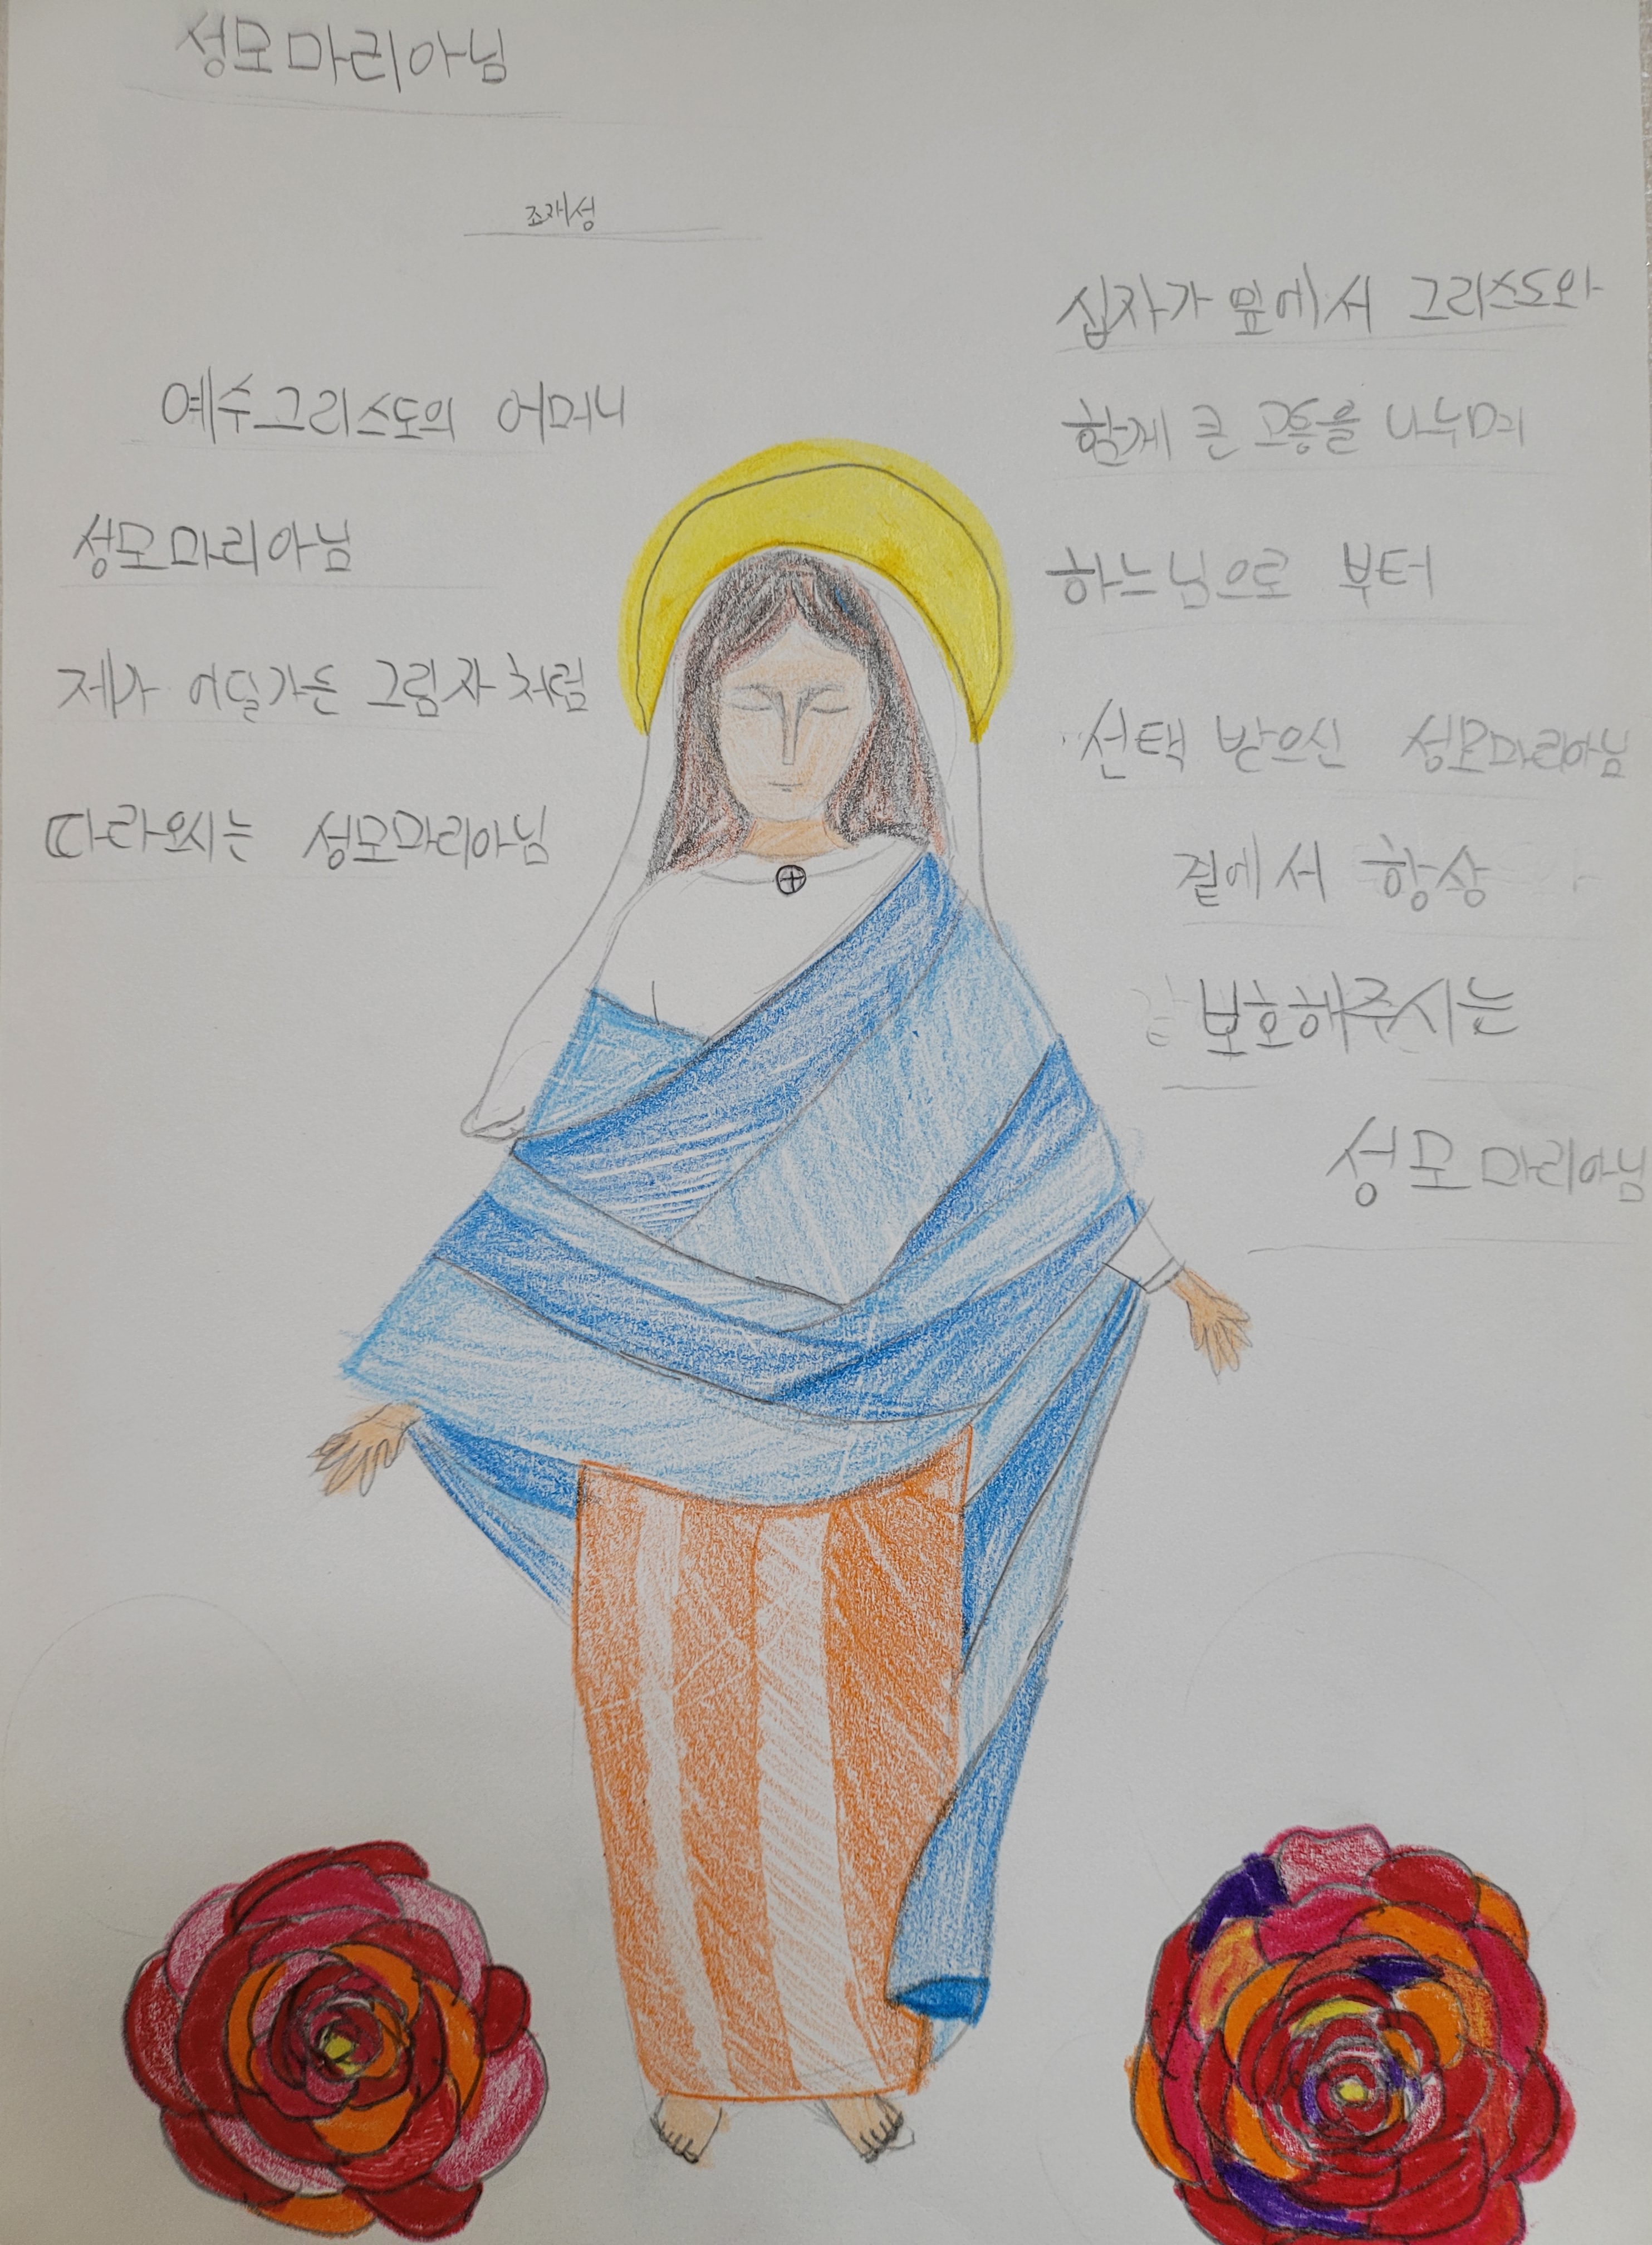 성모마리아님
조재성
예수그리스도의 어머니
성모마리아님
제가 어딜가든 그림자처럼
따라오시는 성모마리아님
십자가 옆에서 그리스도와
함께 큰 고통을 나누며
하느님으로 부터
선택 받으신 성모마리아님
곁에서 항상
보호해주시는
성모마리아님